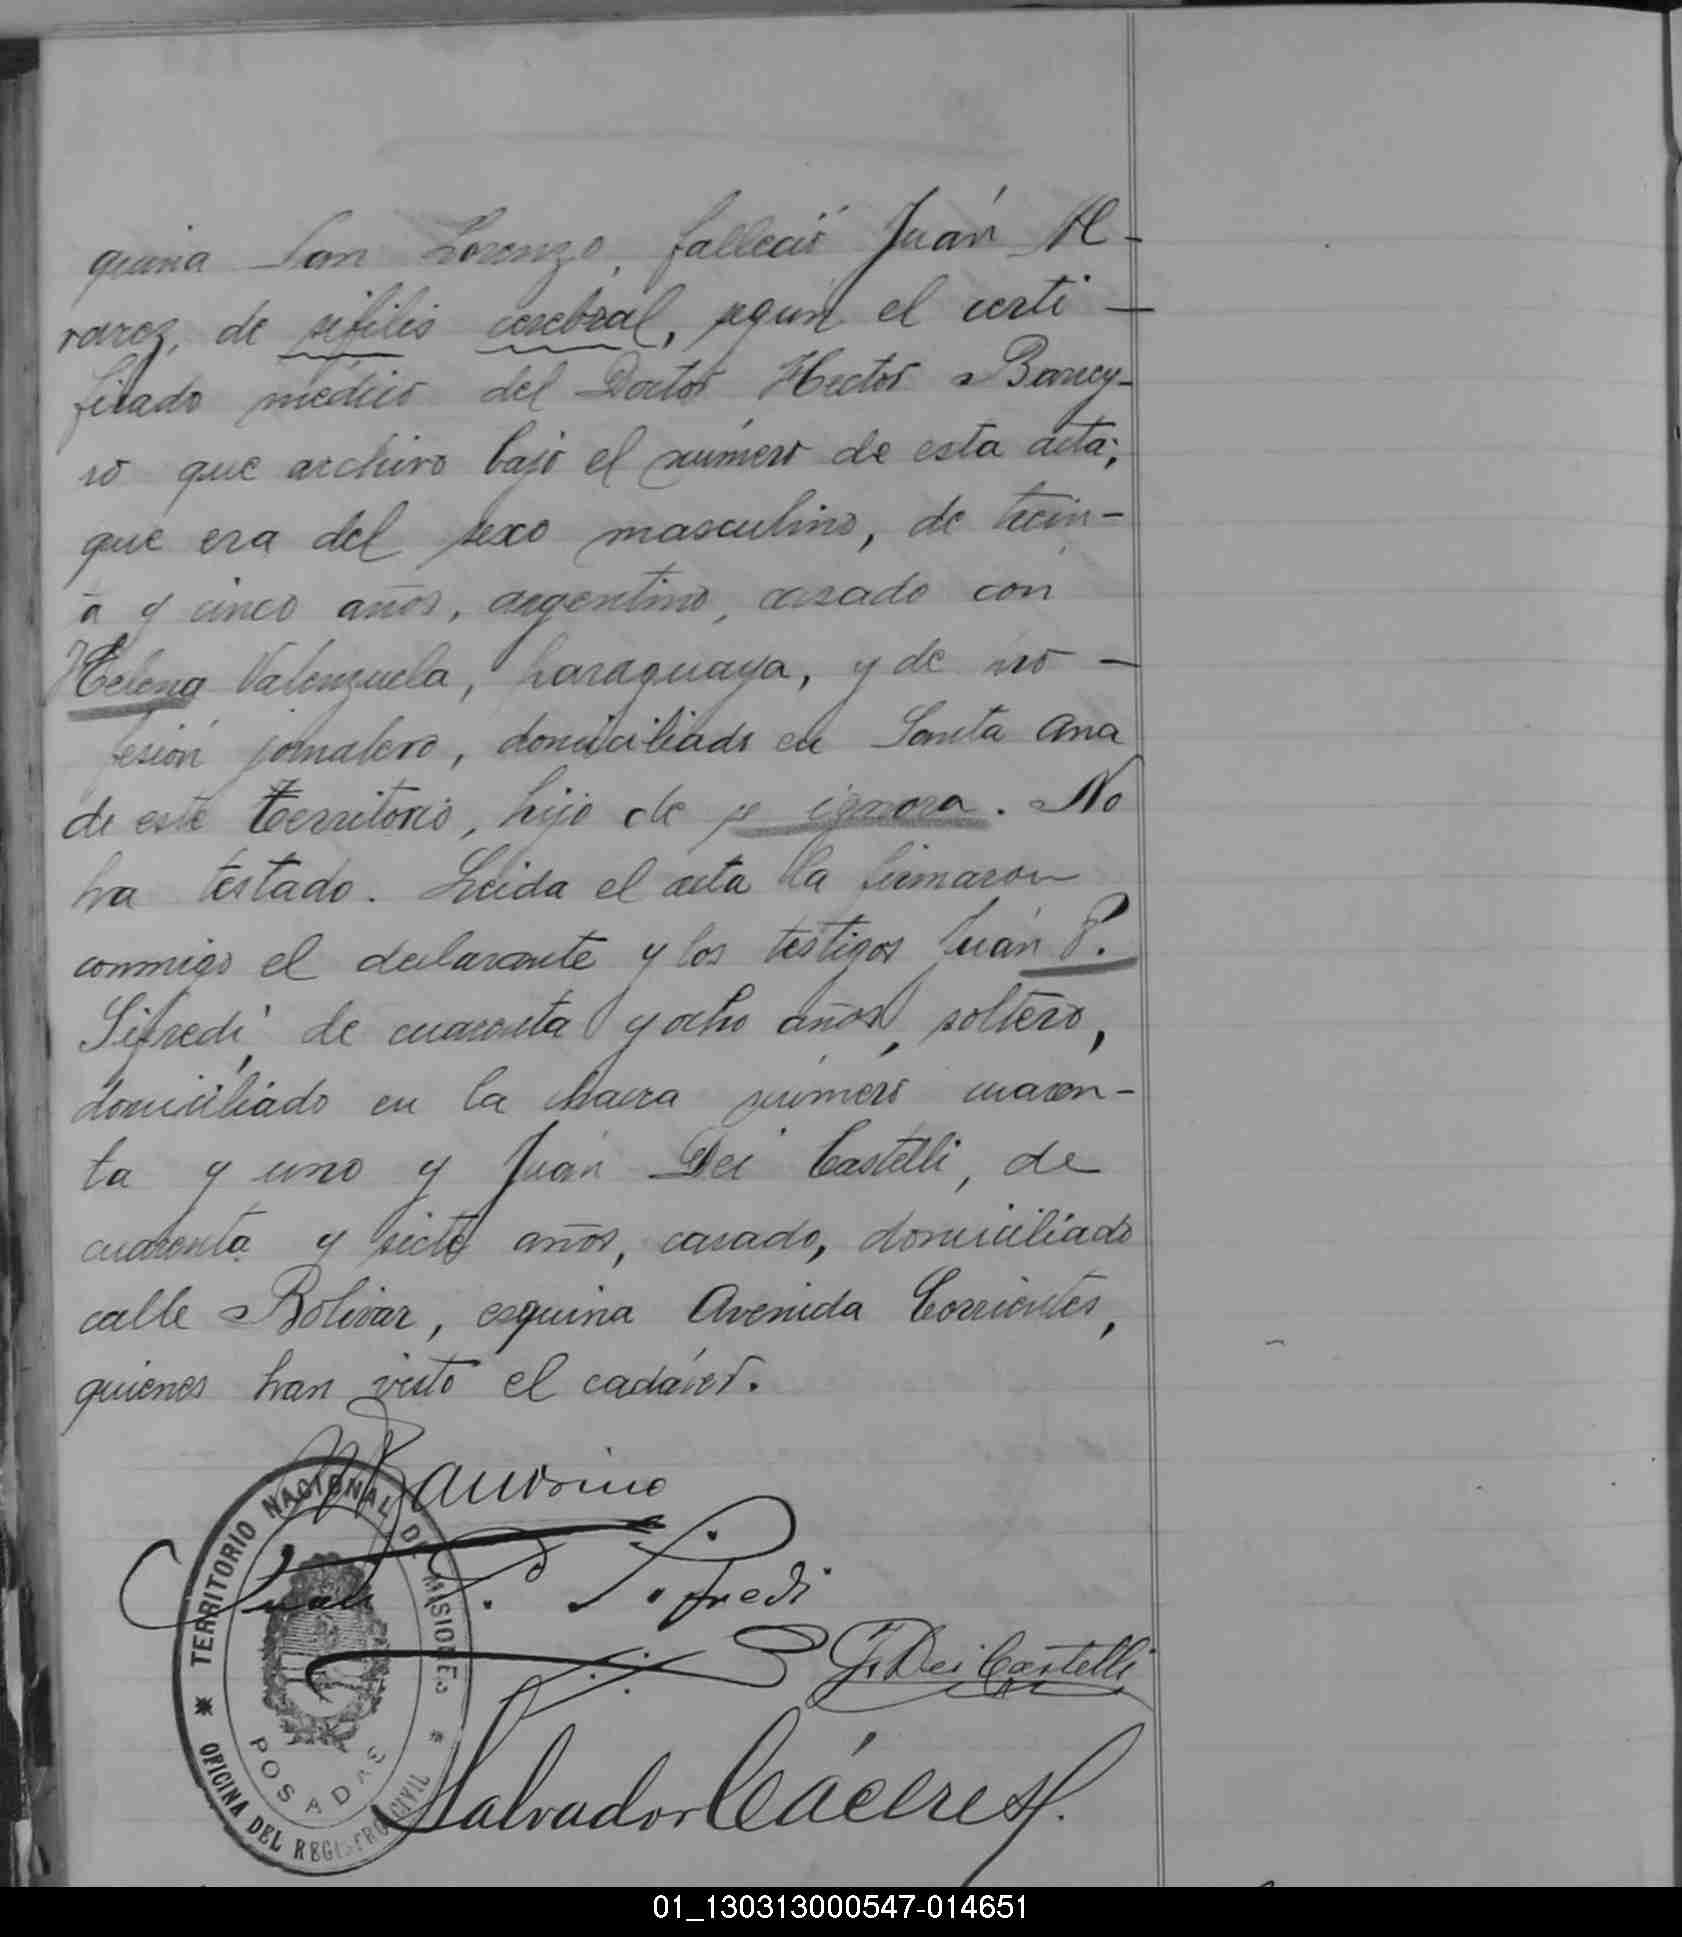 quina San Lorenzo, falleció Juán Al-
varez, de sifilis cerebral, segun el certi-
ficado médico del Doctor Hector Barrey-
ro que archivo bajo el número de esta acta;
que era del sexo masculino, de trein-
a y cinco años, argentino, casado con
Helena Valenzuela, paraguaya, y de pro-
fesión jornalero, domiciliado en Santa Ana
de este Territorio, hijo de se ignora. No
ha testado. Leida el acta la firmaron
conmigo el declarante y los testigos Juán P.
Sifredi, de cuarenta y ocho años, soltero,
domiciliado en la chacra número cuaren-
ta y uno y Juán Dei Castelli, de
cuarenta y siete años, casado, domiciliado
calle Bolivar, esquina Avenida Corrientes,
quienes han visto el cadáver.
Juan P. Sifredi
J. Dei Castelli
Salvador Cáceres H.
TERRITORIO NACIONAL DE MISIONES
POSADAS
OFICINA DEL REGISTRO CIVIL
01_130313000547-014651